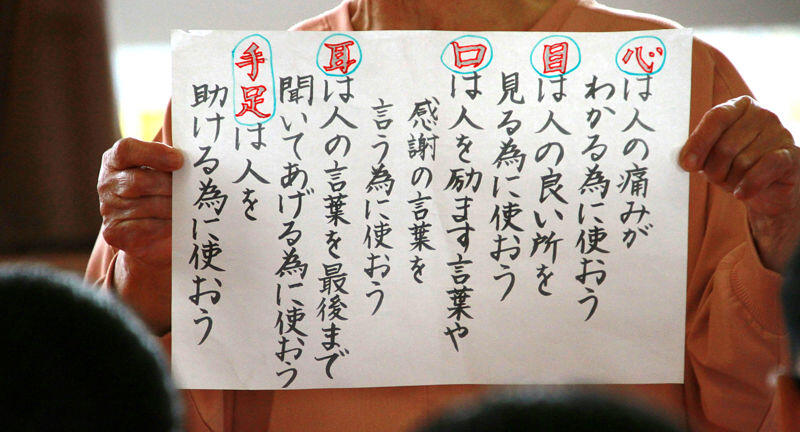 心は人の痛みが
わかる為に使おう
目は人の良い所を
見る為に使おう
口は人を励ます言葉や
感謝の言葉を
言う為に使おう
耳は人の言葉を最後まで
聞いてあげる為に使おう
手足は人を
助ける為に使おう